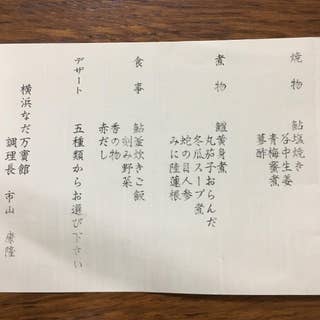 焼物
鮎塩焼き
谷中生姜
青梅蜜煮
蓼酢
煮物
鱧黄身煮
丸茄子おらんだ
冬瓜スープ煮
蛇の目人参
みに陸蓮根
食事
鮎釜炊きご飯
刻み野菜
香の物
赤だし
デザート
五種類からお選び下さい
横浜なだ万賓館
調理長 市山 康隆